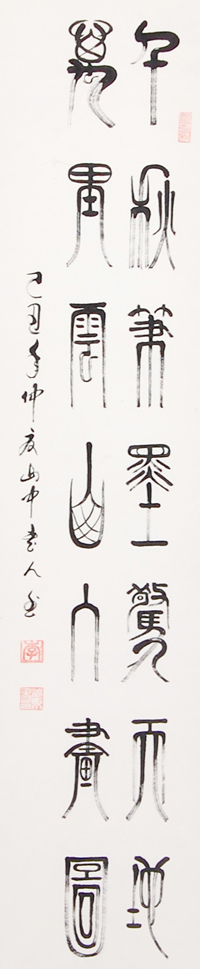 千秋筆墨驚天地
萬里雲山入畫圖
己丑年仲夏山中